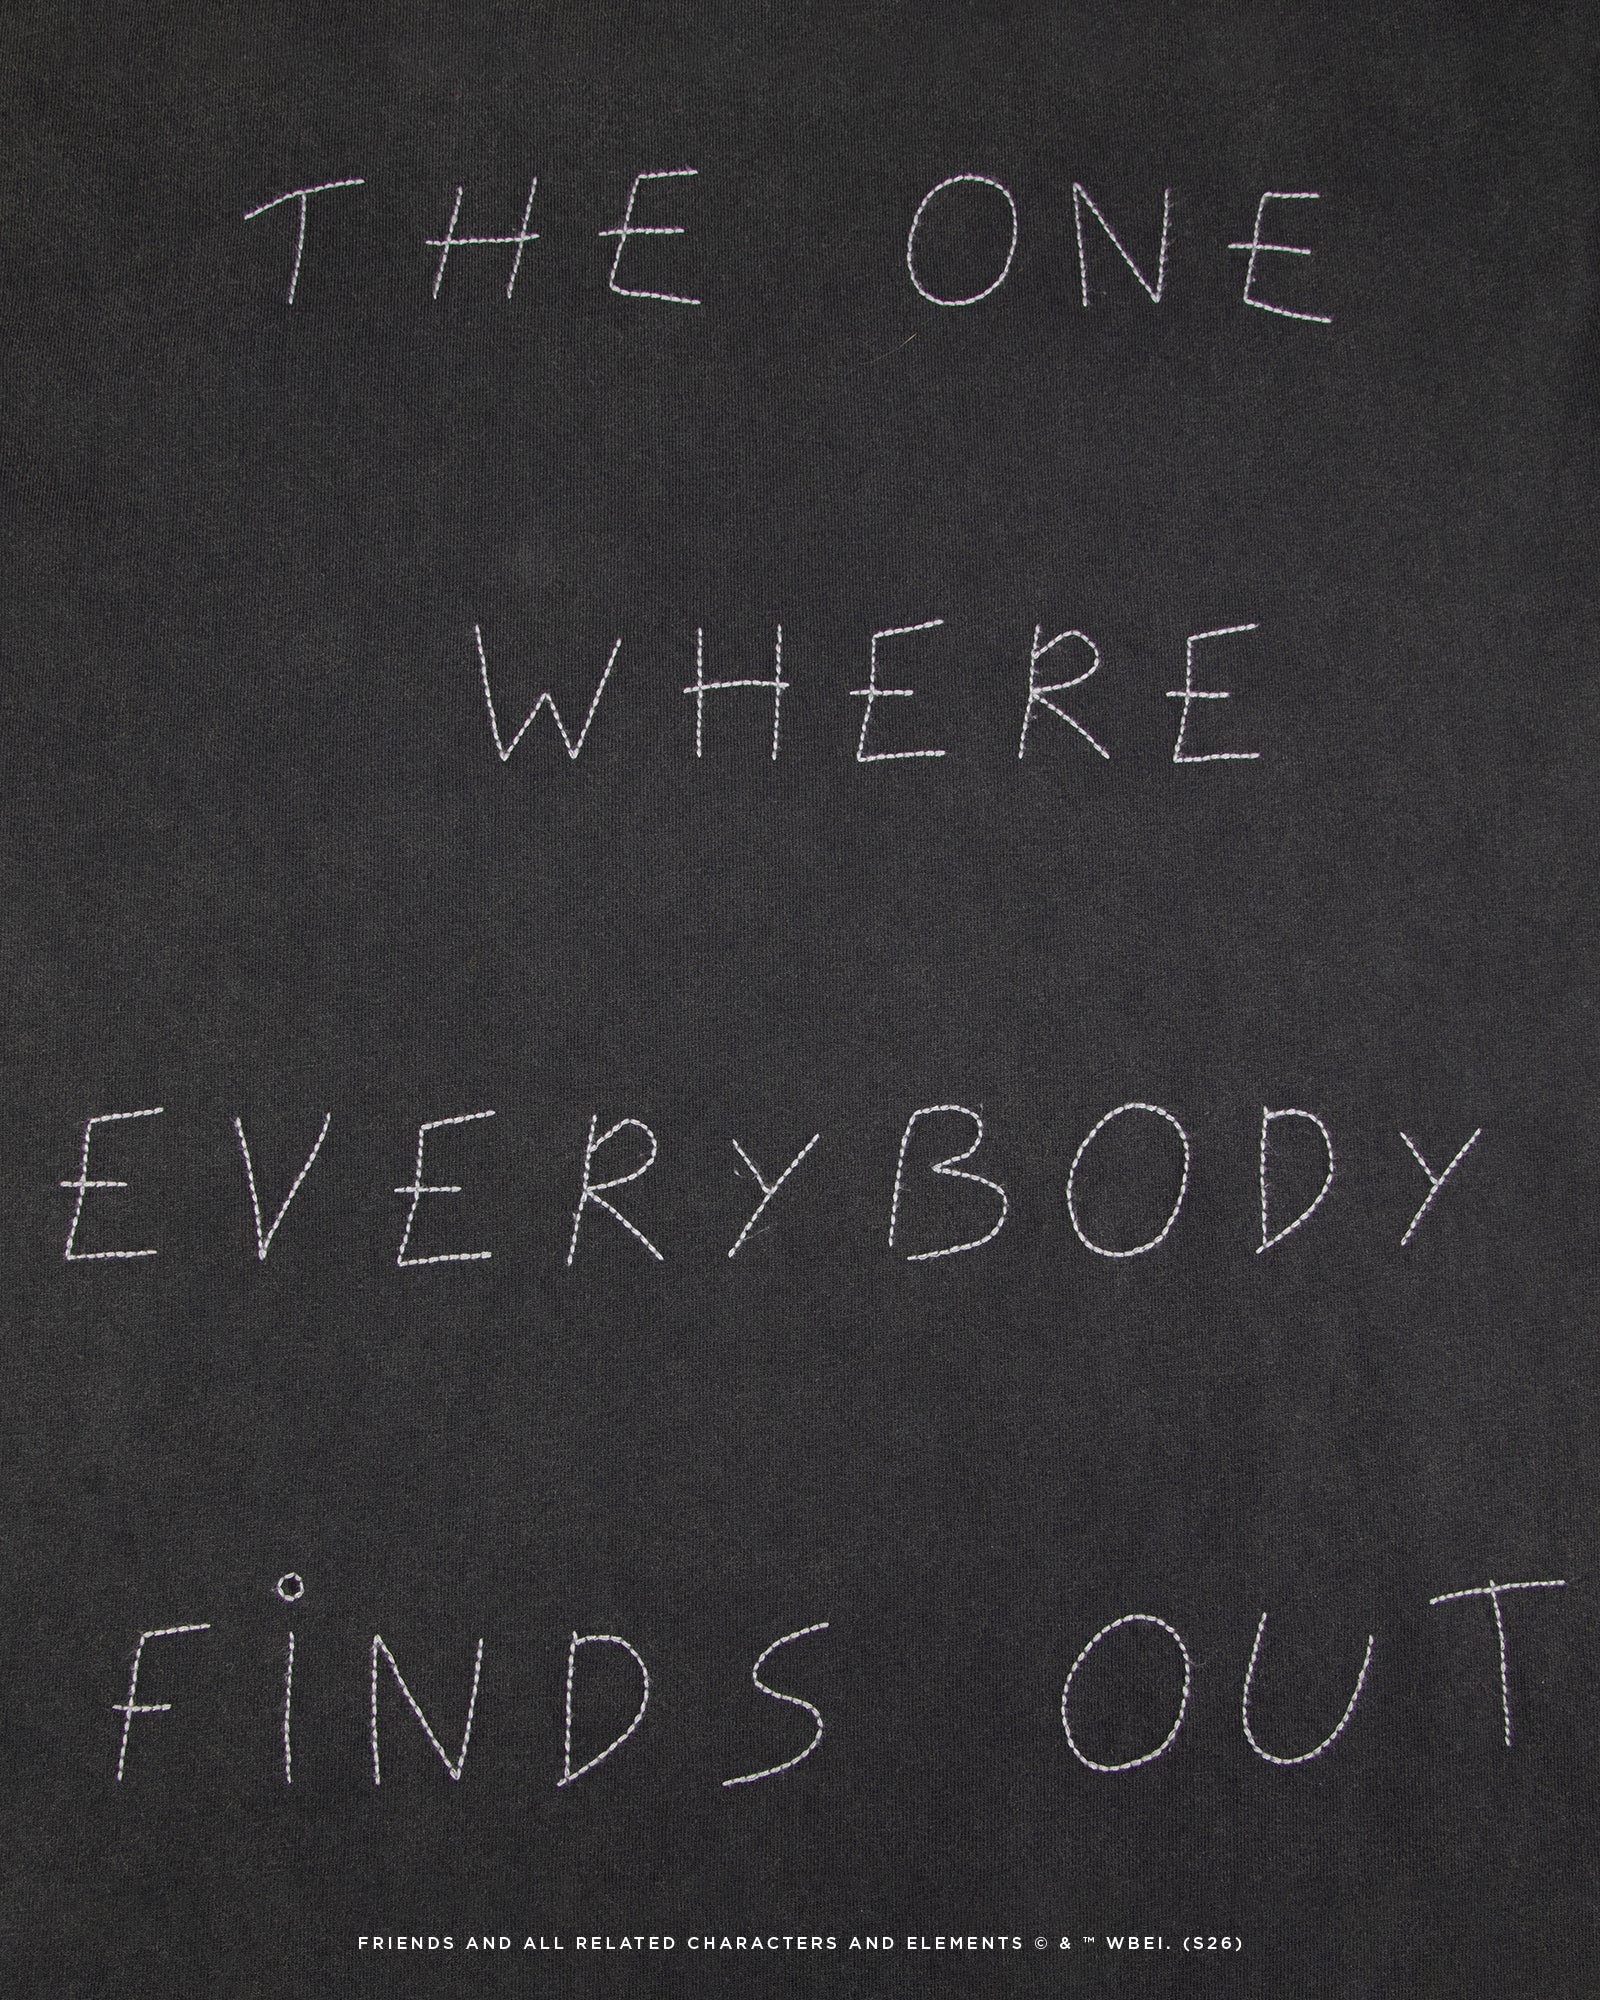 THE ONE
WHERE
EVERYBODY
FiNDS OUT
FRIENDS AND ALL RELATED CHARACTERS AND ELEMENTS © & ™ WBEI. (S26)